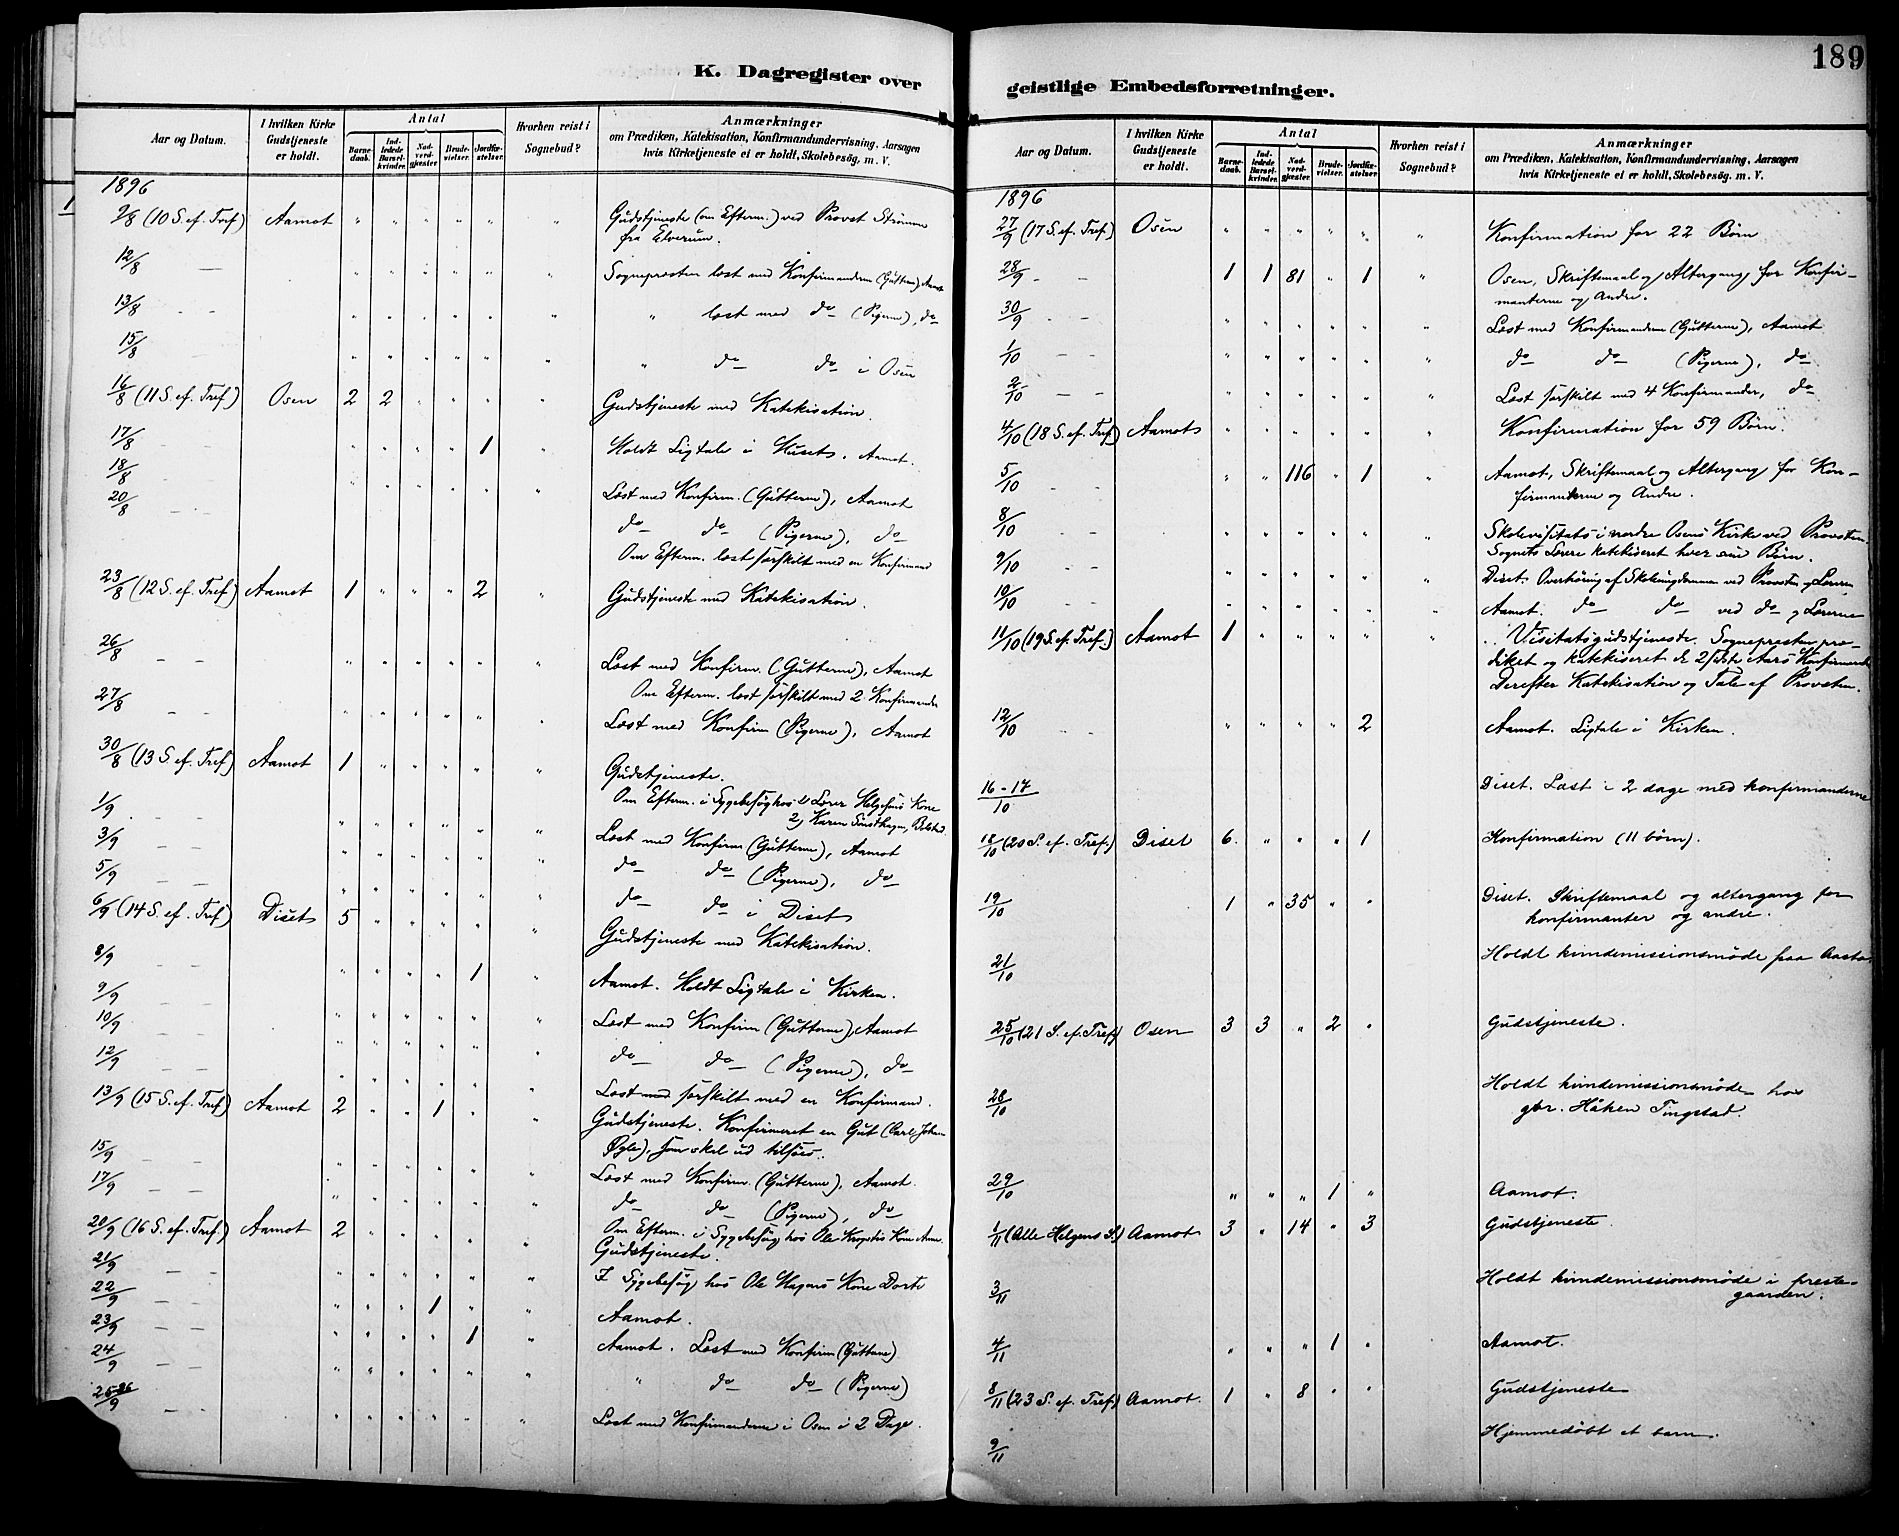 K. Dagregister over
Aar og Datum.
I hvilken Kirke Gudstjeneste er holdt.
Antal
Barne-daab.
Ind-ledede Barsel-kvinder.
Nad-verd-gjæster.
Brude-vielser.
Jordfæ-stelser.
Hvorhen reist i Sognebud?
Anmærkninger
om Prædiken, Katekisation, Konfirmandundervisning, Aarsagen
hvis Kirketjeneste ei er holdt, Skolebesøg, m. V.
1896
9/8 (10 S. ef. Tref) Aamot " " " " " " Gudstjeneste (om Efterm.) ved Provst Strømme
fra Elverum.
12/8 — " " " " " " Sognepresten læst med Konfirmanderne (Guttene), Aamot
13/8 - - " " " " " " " læst med do (Pigerne), do
15/8 " " " " " " " do do i Osen
16/8 (11 S. ef. Tref) Osen 2 2 " " " " Gudstjeneste med Katekisation.
17/8 - - " " " " 1 " Holdt Ligtale i Huset, Aamot.
18/8 " " " " " " Læst med Konfirm. (Gutterne), Aamot
20/8 - - do do (Pigerne), do
Om Efterm. læst særskilt med en Konfirmand
23/8 (12 S. ef. Tref) Aamot 1 " " " 2 " Gudstjeneste med Katekisation.
26/8 — — " " " " " " Læst med Konfirm. (Gutterne), Aamot
Om Efterm. læst særskilt med 2 Konfirmander
27/8 — — " " " " " " Læst med Konfirm (Pigerne), Aamot
30/8 (13 S. ef. Tref) Aamot 1 " " " " " Gudstjeneste.
1/9 - — " " " " " " Om Efterm. i Sygebesøg hos 1) Lærer Helgesens Kone
2) Karen
3/9 — — " " " " " " Læst med Konfirm (Gutterne), Aamot
5/9 — — " " " " " do do (Pigerne), do
do do i Diset
6/9 (14 S. ef. Tref) Diset 5 " " " " " Gudstjeneste med Katekisation.
8/9 — — " " " " 1 " Aamot. Holdt Ligtale i Kirken.
9/9 — — " " " " " " Læst med Konfirm (Gutterne), Aamot
10/9 — — " " " " " " do do (Pigerne), do
12/9 — — " " " " " " Læst med særskilt med en Konfirmand.
13/9 (15 S. ef. Tref) Aamot 2 " " 1 " " Gudstjeneste. Konfirmeret en Gut (Carl Johan
som skal ud tilsøes.
15/9 — — " " " " " " Læst med Konfirm. (Gutterne), Aamot.
17/9 — — " " " " " " do do (Pigerne), do
Om Efterm. i Sygebesøg hos Ole Kone
20/9 (16 S. ef. Tref.) Aamot 2 " " " " " Gudstjeneste.
21/9 — — " " " " " " I Sygebesøg hos Ole Hagens Kone Dorte
22/9 — — " " " 1 " " Aamot.
23/9 — — " " " " 1 " Aamot. Læst med Konfirm (Guttene)
24/9 — — " " " " " " " do do (Pigerne)
25-26/9 — — " " " " " " Læst med Konfirmanderne i Osen i 2 Dage.
geistlige Embedsforretninger.
189
Aar og Datum.
I hvilken Kirke Gudstjeneste er holdt.
Antal
Barne-daab.
Ind-ledede Barsel-kvinder.
Nad-verd-gjæster.
Brude-vielser.
Jordfæ-stelser.
Hvorhen reist i Sognebud?
Anmærkninger
om Prædiken, Katekisation, Konfirmandundervisning, Aarsagen
hvis Kirketjeneste ei er holdt, Skolebesøg, m. V.
1896
27/9 (17 S. ef. Tref) Osen " " " " " " Konfirmation for 22 Børn
28/9 - - 1 1 81 " 1 " Osen, Skriftemaal og Altergang for Konfir-
manterne og Andre.
30/9 - - " " " " " " Læst med Konfirmanderne (Gutterne), Aamot
1/10 — — " " " " " " do do (Pigerne), do
2/10 — — " " " " " " Læst særskilt med 4 Konfirmander, do
4/10 (18 S. ef. Tref) Aamot " " " " " " Konfirmation for 59 Børn.
5/10 - - " " 116 " 1 " Aamot, Skriftemaal og Altergang for Kon-
firmanterne og Andre.
8/10 - - " " " " " " Skolevisitats i nordre Osens Kirke ved Provsten.
Sognets Lærere katekiseret hver sine Børn.
9/10 - - " " " " " " Diset. Overhøring af Skoleungdommen ved Provsten og Læreren
10/10 - - " " " " " " Aamot. do do ved do og Lærerne
11/10 (19 S. ef. Tref.) Aamot 1 " " " " " Visitatsgudstjeneste. Sognepresten præ-
diket og katekiseret de 2 sidste Aars Konfirmander
Derefter Katekisation og Tale af Provsten.
12/10 - - " " " " 2 Aamot. Ligtale i Kirken.
16-17/10 Diset. Læst i 2 dage med konfirmanderne
18/10 (20 S. ef. Tref.) Diset 6. " " " 1 Konfirmation (11 børn).
19/10 1 " 35 " " Diset. Skriftemaal og altergang for
konfirmanter og andre.
21/10 Holdt kvindemissionsmøde paa Aasta.
25/10 (21 S. ef. Tref) Osen 3 3 " 2 " Gudstjeneste.
28/10 Holdt kvindemissionsmøde hos
gbr. Håken Tingstad.
29/10 " " " 1 " Aamot.
1/11 (Alle Helgens S.) Aamot 3 " 14 " 3 Gudstjeneste.
3/11 Holdt kvindemissionsmøde i preste-
gaarden.
4/11 " " " 1 " Aamot.
8/11 (23 S. ef. Tref.) Aamot. 1 " 8 " " Gudstjeneste
9/11 Hjemmedøbt et barn.